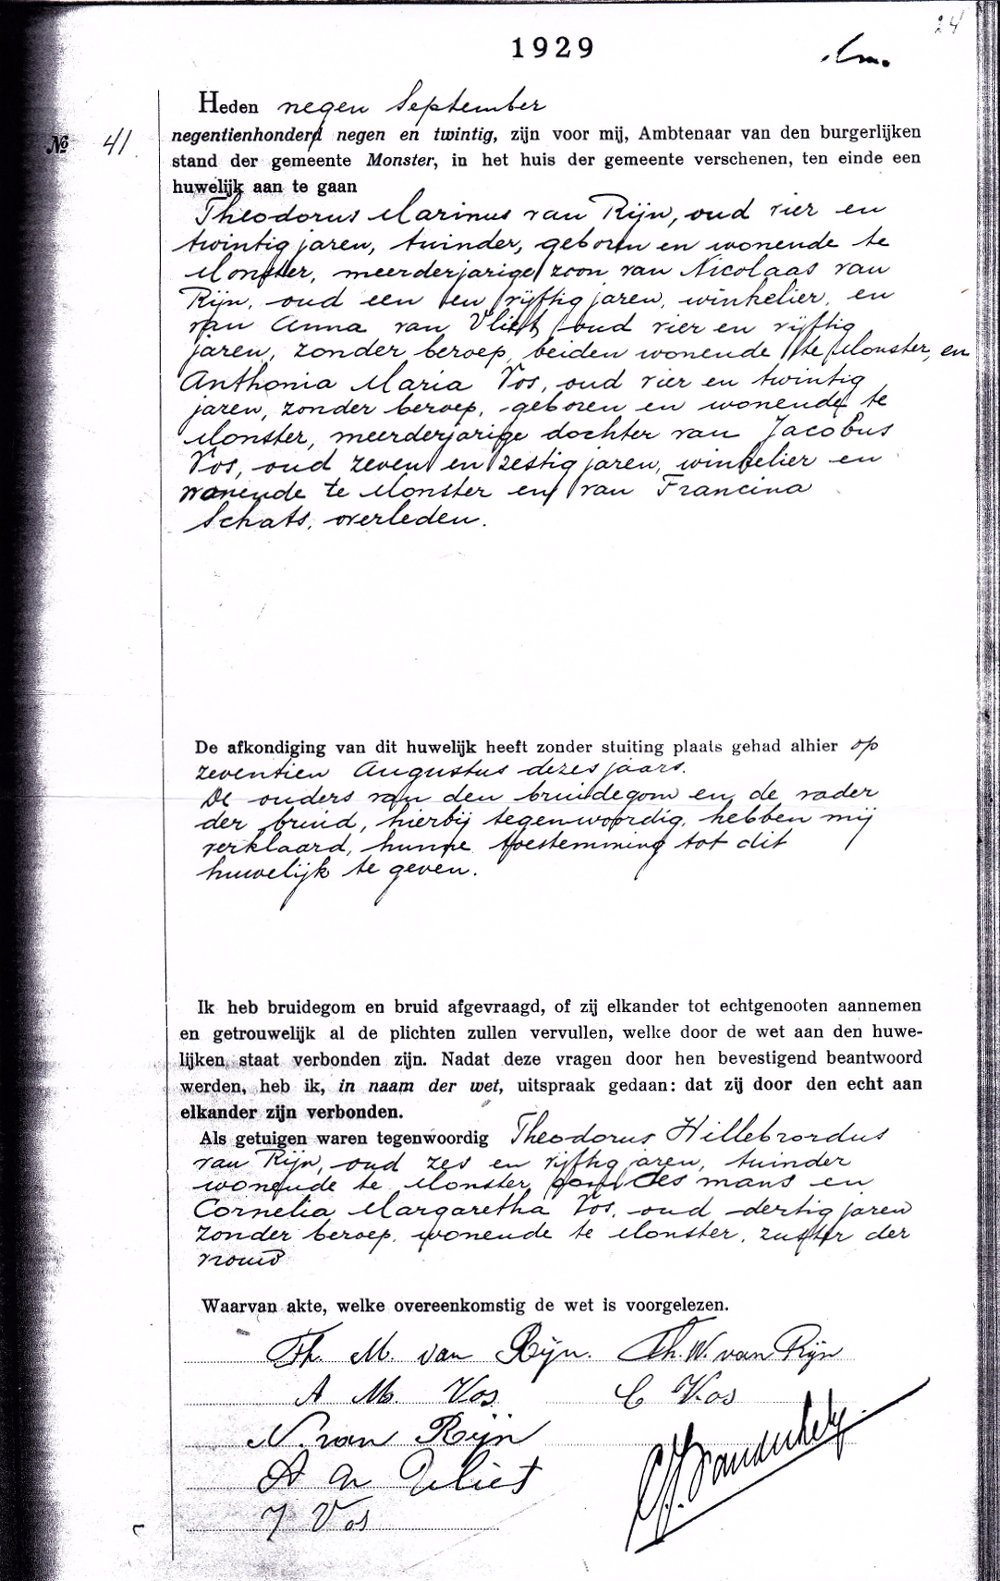 24
1929
Nº 41.
Heden negen September
negentienhonderd negen en twintig, zijn voor mij, Ambtenaar van den burgerlijken
stand der gemeente Monster, in het huis der gemeente verschenen, ten einde een
huwelijk aan te gaan
Theodorus Marinus van Rijn, oud vier en
twintig jaren, tuinder, geboren en wonende te
Monster, meerderjarige zoon van Nicolaas van
Rijn, oud een en vijftig jaren, winkelier, en
van Anna van Vliet, oud vier en vijftig
jaren, zonder beroep, beiden wonende te Monster, en
Anthonia Maria Vos, oud vier en twintig
jaren, zonder beroep, geboren en wonende te
Monster, meerderjarige dochter van Jacobus
Vos, oud zeven en zestig jaren, winkelier en
wonende te Monster en van Francina
Schats, overleden.
De afkondiging van dit huwelijk heeft zonder stuiting plaats gehad alhier op
zeventien Augustus dezes jaars.
De ouders van den bruidegom en de vader
der bruid, hierbij tegenwoordig, hebben mij
verklaard, hunne toestemming tot dit
huwelijk te geven.
Ik heb bruidegom en bruid afgevraagd, of zij elkander tot echtgenooten aannemen
en getrouwelijk al de plichten zullen vervullen, welke door de wet aan den huwe-
lijken staat verbonden zijn. Nadat deze vragen door hen bevestigend beantwoord
werden, heb ik, in naam der wet, uitspraak gedaan: dat zij door den echt aan
elkander zijn verbonden.
Als getuigen waren tegenwoordig Theodorus Willebrordus
van Rijn, oud zes en vijftig jaren, tuinder
wonende te Monster, oom des mans en
Cornelia Margaretha Vos, oud dertig jaren
zonder beroep, wonende te Monster, zuster der
vrouw
Waarvan akte, welke overeenkomstig de wet is voorgelezen.
Th. M. van Rijn. Th. W. van Rijn
A M. Vos C Vos
N. van Rijn
A v Vliet
J Vos